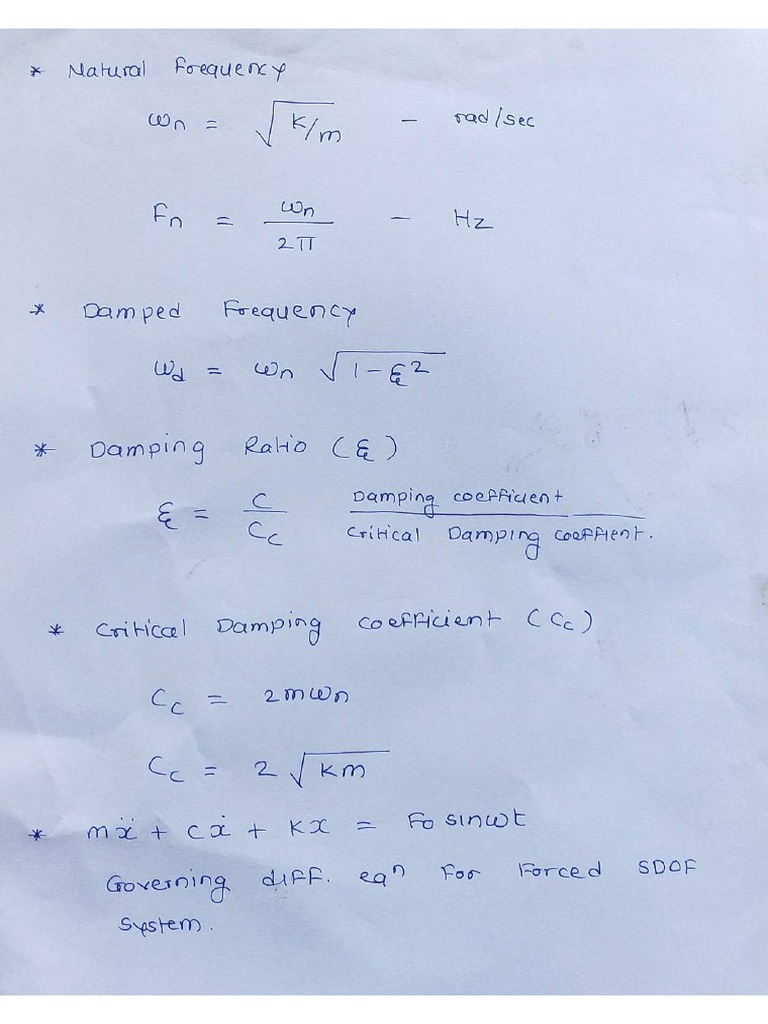 * Natural Frequency
ωn = √K/m - rad/sec
Fn = ωn / 2π - Hz
* Damped Frequency
ωd = ωn √1-ξ²
* Damping Ratio (ξ)
ξ = C / Cc Damping coefficient / critical Damping coeffient.
* Critical Damping coefficient (Cc)
Cc = 2mωn
Cc = 2√km
* mẍ + cẋ + kx = Fo sinωt
Governing diff. eqⁿ For Forced SDOF
System.